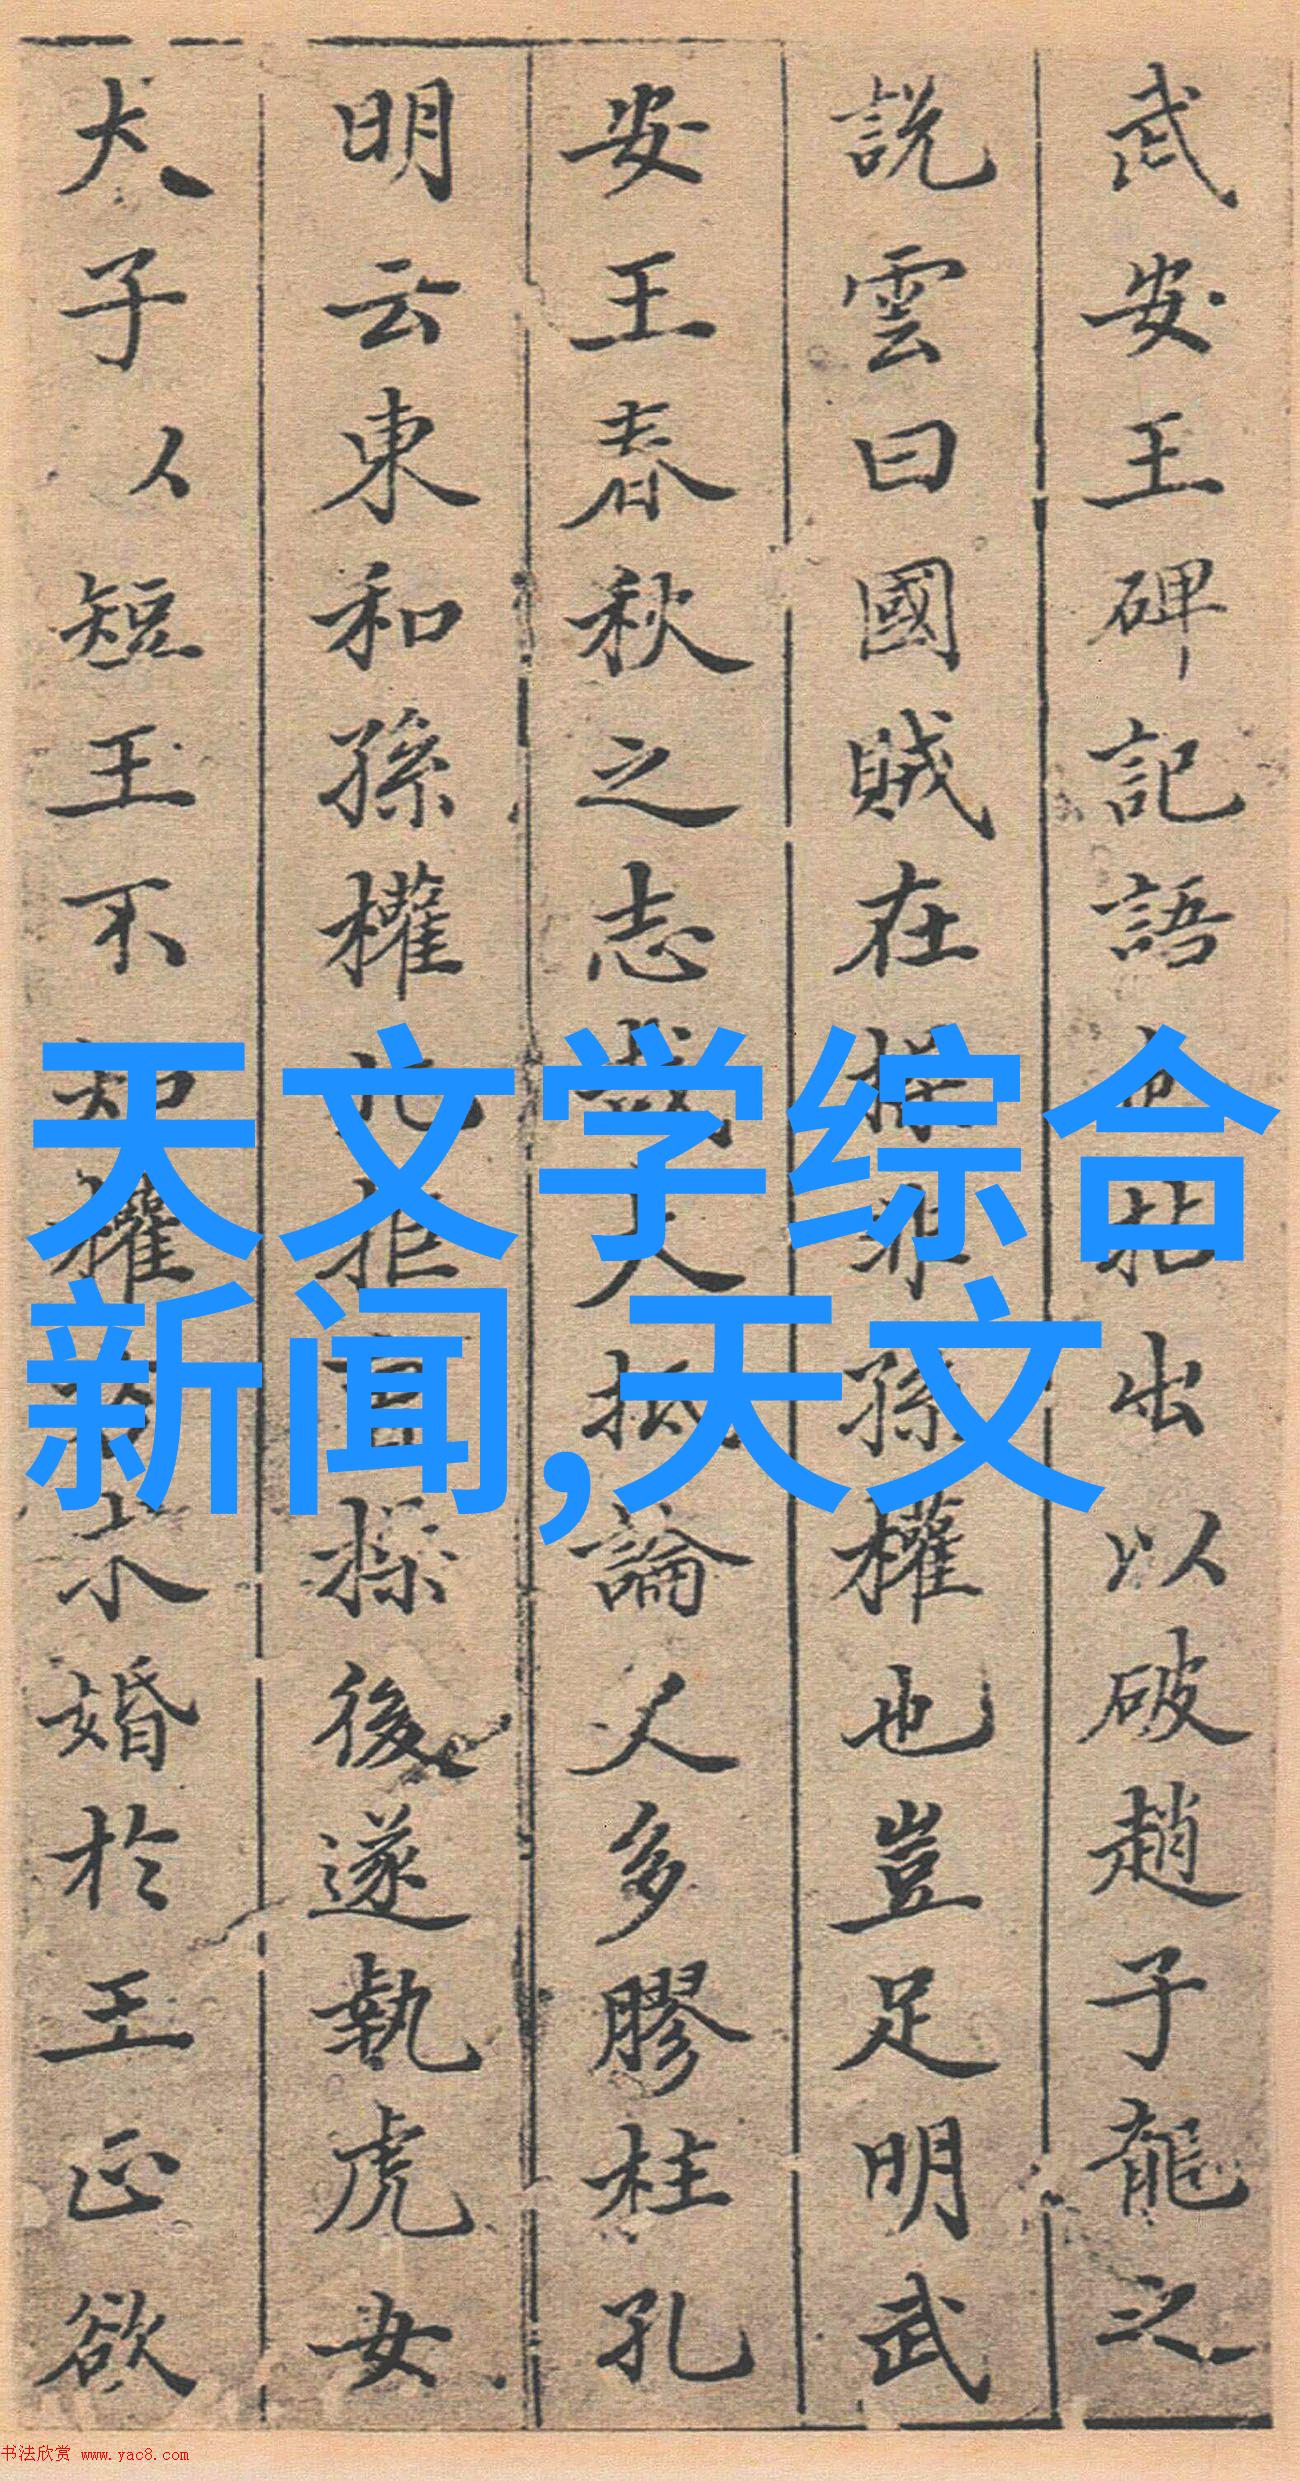 武安王碑記語出以破趙子龍之
説雲曰國賊在操非孫權也豈足明武
安王春秋之志哉大抵論人多膠柱孔
明云東和孫權北拒曹操後遂執虎女
犬子以短王不知權求婚於王正欲
天文学综合
新闻,天文
书法欣赏 www.yac8.com